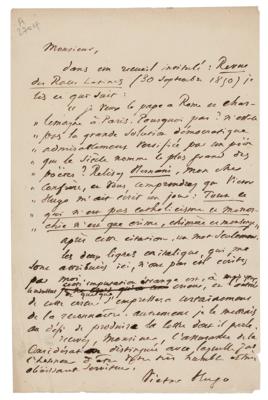 A
2704
Monsieur,
dans un recueil intitulé : Revue
des Races Latines (30 septembre 1850) je
lis ce qui suit :
" je veux le pape a Rome et Char-
" lemagne à Paris. Pourquoi pas ? n'est-ce
" pas la grande solution démocratique
" admirablement par un
" que le siècle nomme le plus grand des
" poètes ? Relisez Hernani, mon cher
" confrère, et vous comprendrez que Victor
" Hugo m'ait écrit un jour : Tout ce
" qui n'est pas catholicisme et monar-
" chie n'est que crime, chimère et
après cette citation, un mot seulement.
les deux lignes en italique qui me
sont attribuées ici, n'ont pas été écrites
par moi. imputation étrange est, à
de cette erreur. J'empresse certainement
de la reconnaître. autrement je le mettrais
au défi de produire la lettre dont il parle.
recevez, Monsieur, l'assurance de la
considération distinguée avec laquelle j'ai
l'honneur d'être votre très humble et très
obéissant serviteur.
Victor Hugo